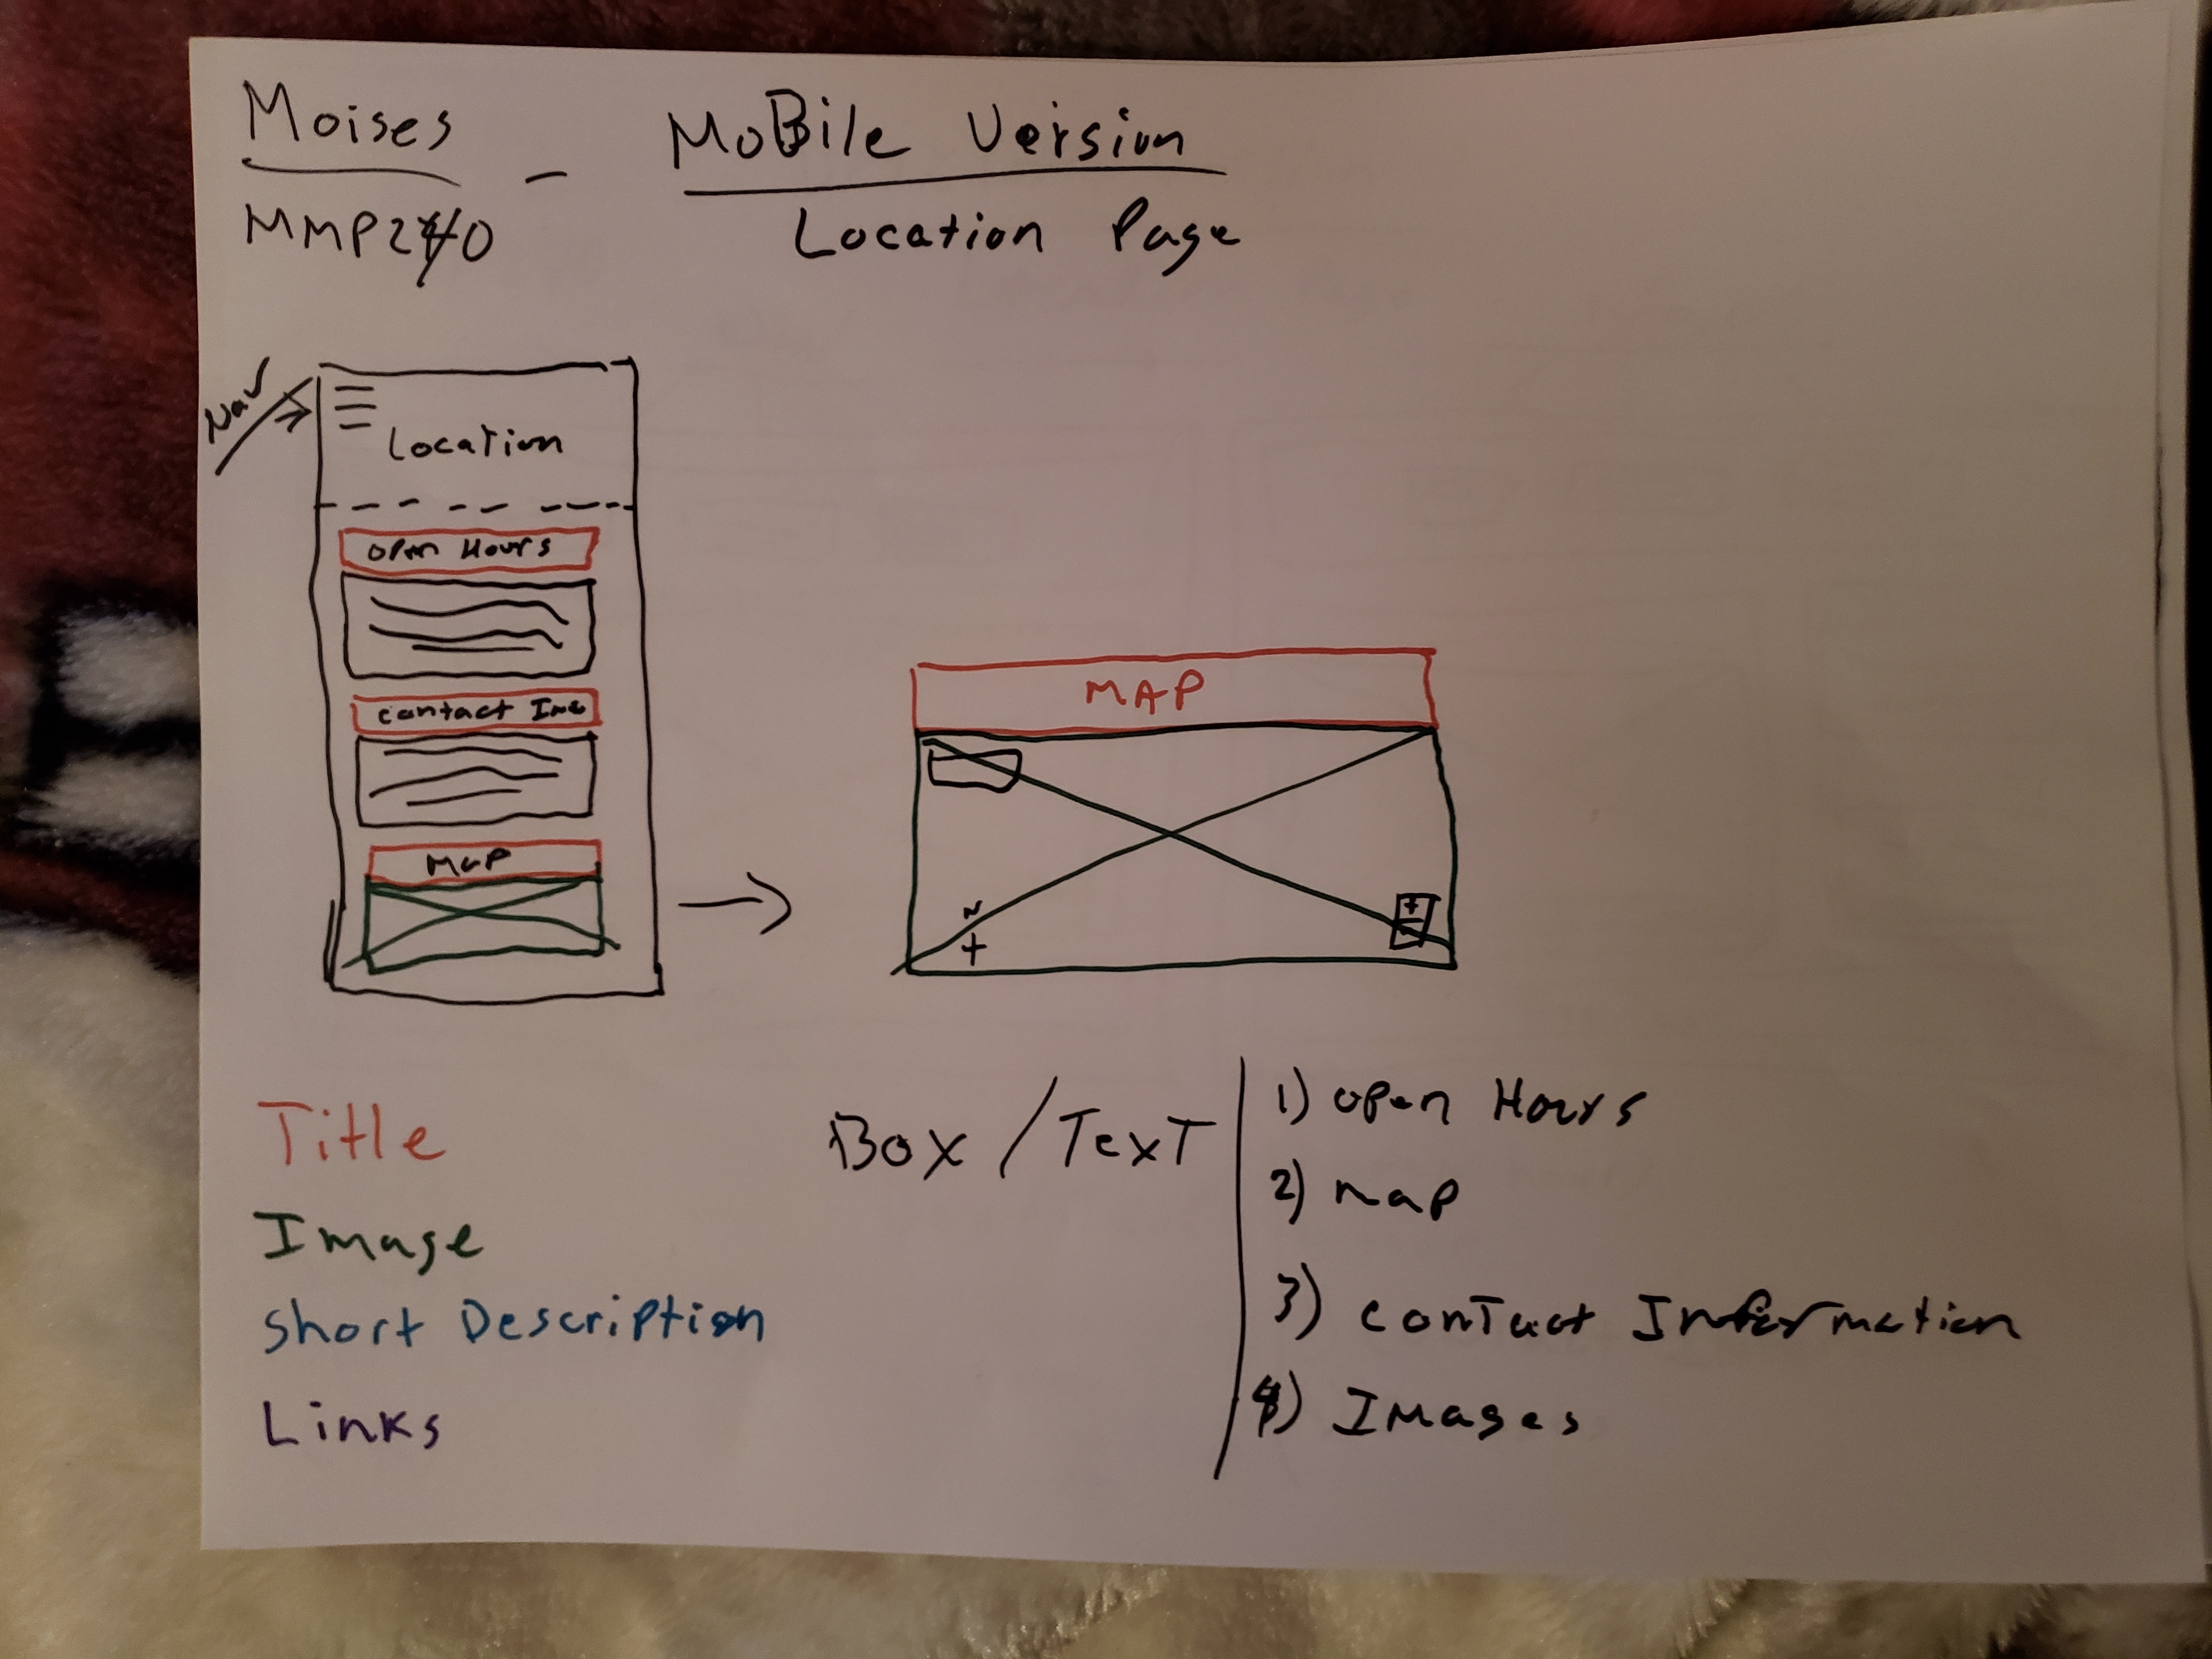 Moises
MMP240
-
MoBile Version
Location Page
Nav
Location
open Hours
contact
Map
MAP
N
+
+
Title
Image
Short Description
Links
Box / Text
1) open Hours
2) map
3) contact Information
4) Images